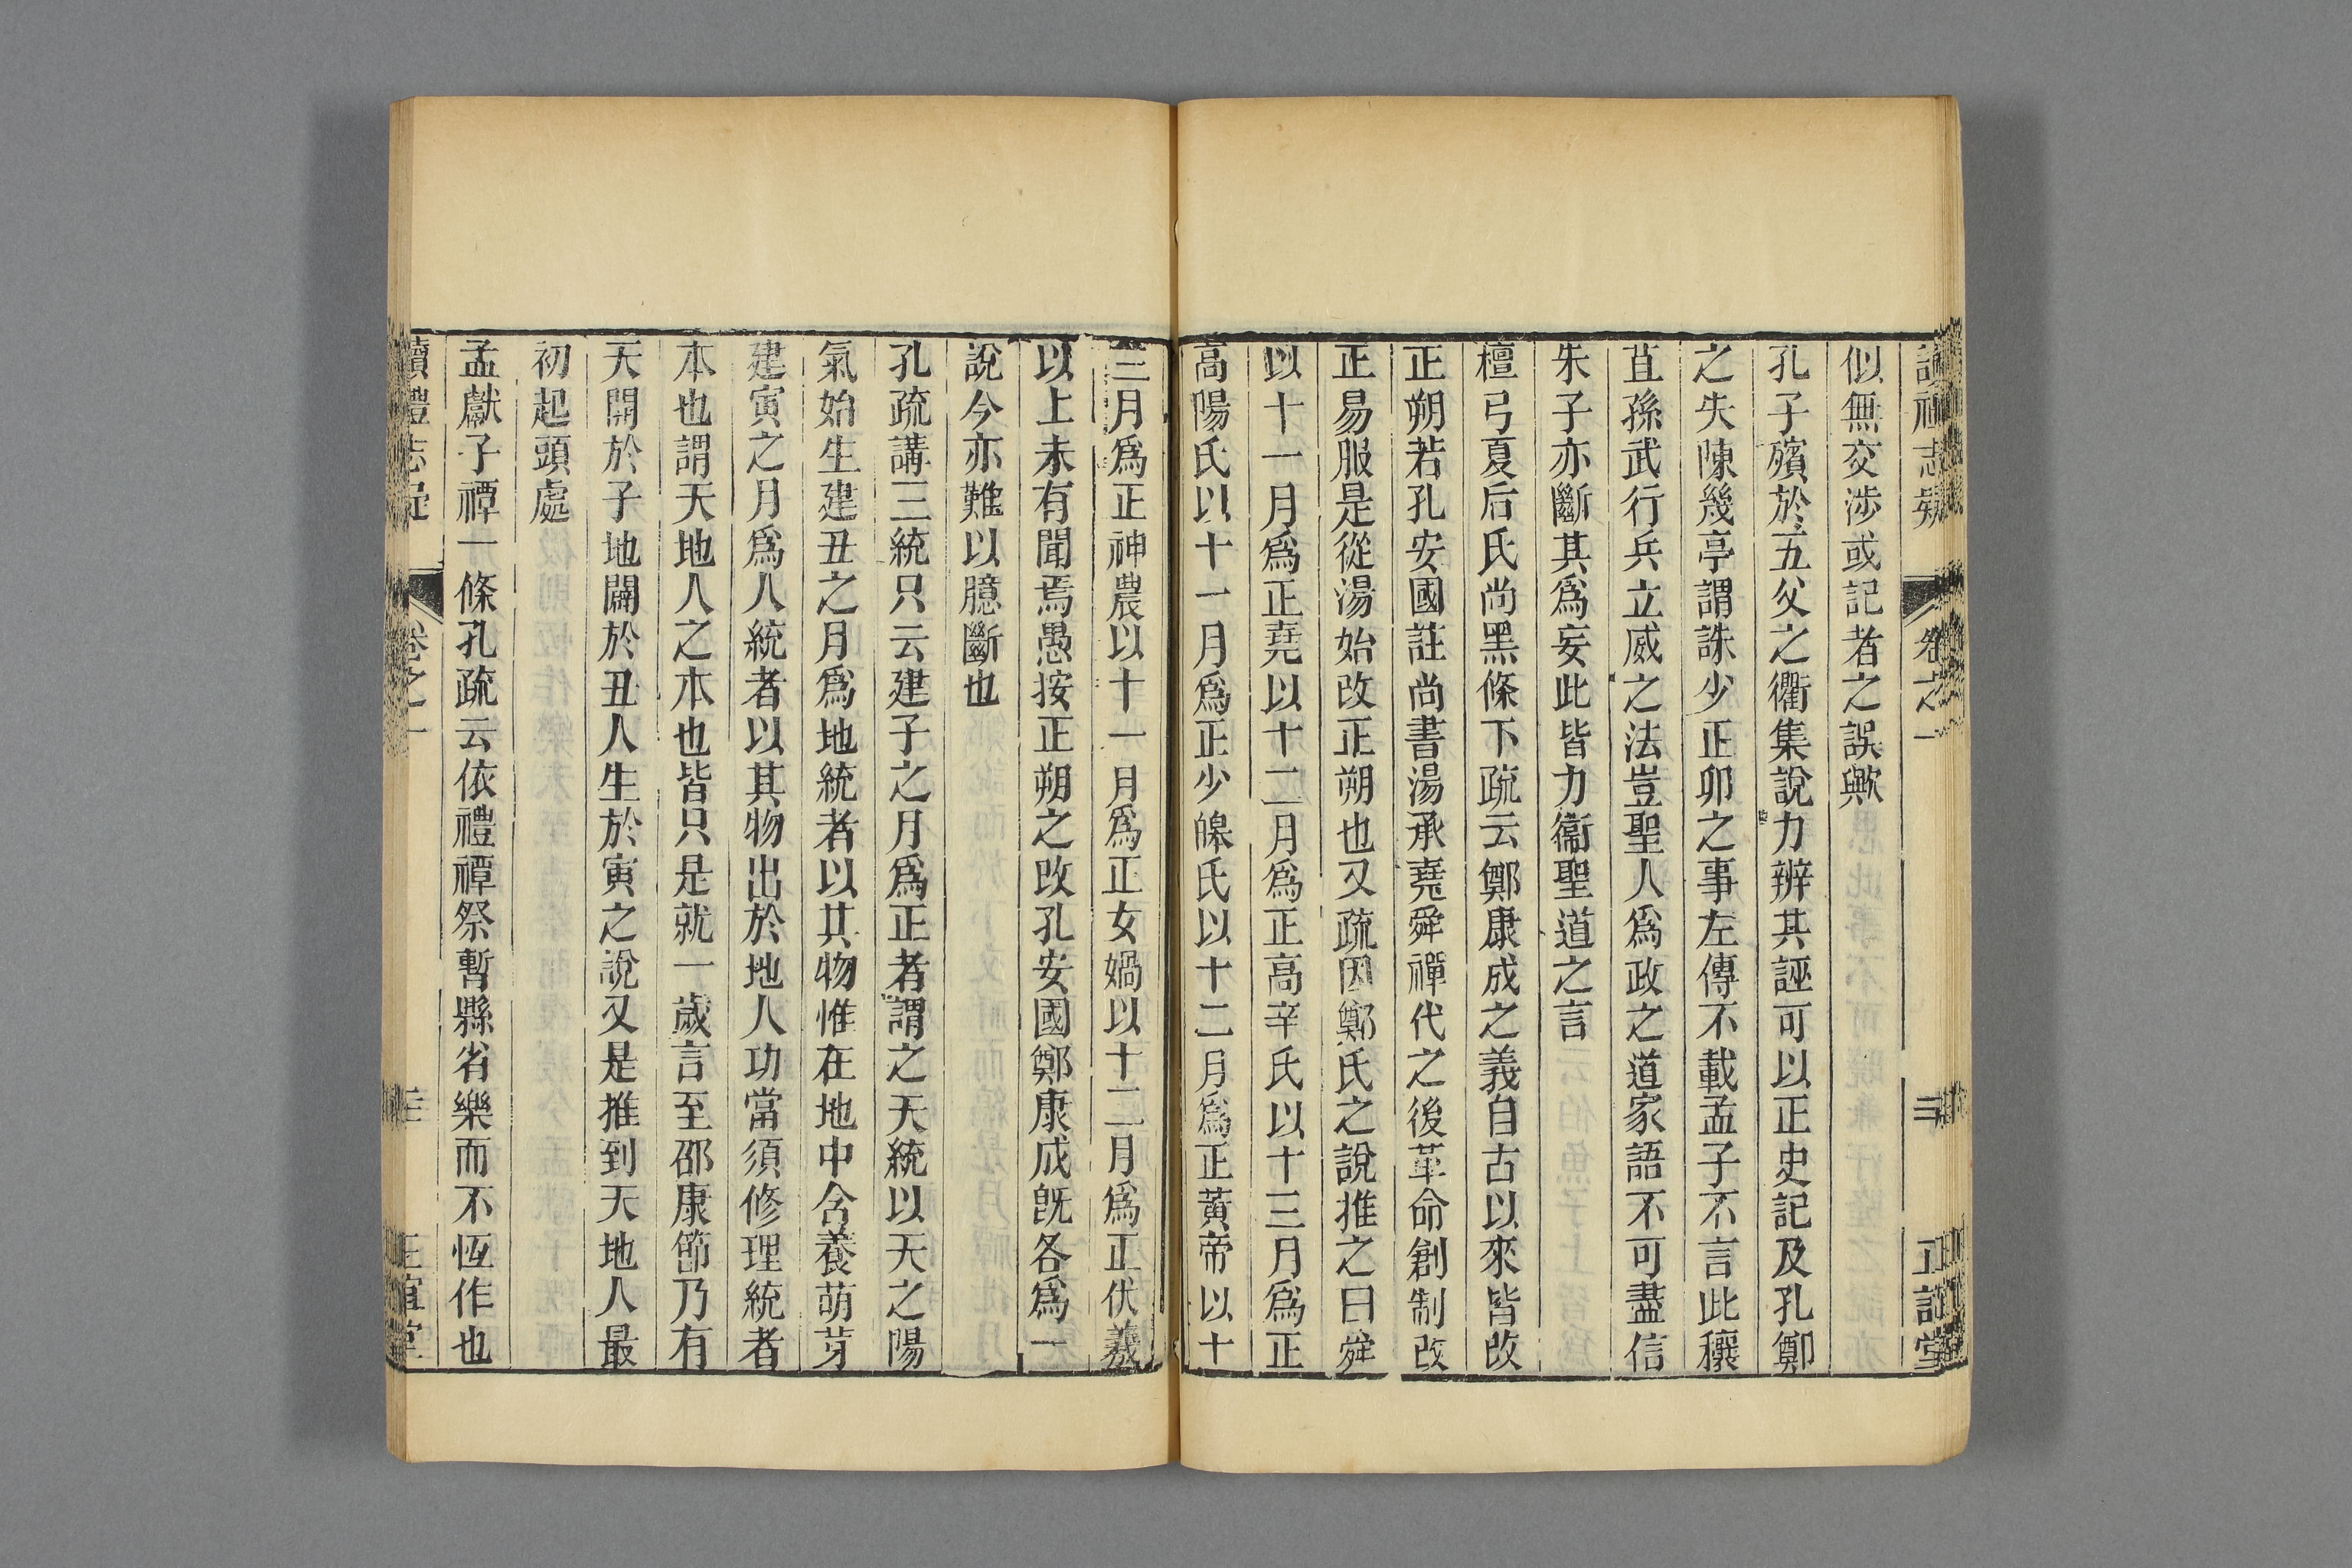 讀禮志疑 卷之一 二 正誼堂
似無交涉或記者之誤歟
孔子殯於五父之衢集說力辨其誣可以正史記及孔鄭
之失陳幾亭謂誅少正卯之事左傳不載孟子不言此穰
苴孫武行兵立威之法豈聖人爲政之道家語不可盡信
朱子亦斷其爲妄此皆力衞聖道之言
檀弓夏后氏尚黑條下疏云鄭康成之義自古以來皆改
正朔若孔安國註尚書湯承堯舜禪代之後革命創制改
正易服是從湯始改正朔也又疏因鄭氏之說推之曰舜
以十一月爲正堯以十二月爲正高辛氏以十三月爲正
高陽氏以十一月爲正少皞氏以十二月爲正黃帝以十
三月爲正神農以十一月爲正女媧以十二月爲正伏羲
以上未有聞焉愚按正朔之改孔安國鄭康成旣各爲一
說今亦難以臆斷也
孔疏講三統只云建子之月爲正者謂之天統以天之陽
氣始生建丑之月爲地統者以其物惟在地中含養萌芽
建寅之月爲人統者以其物出於地人功當須修理統者
本也謂天地人之本也皆只是就一歲言至邵康節乃有
天開於子地闢於丑人生於寅之說又是推到天地人最
初起頭處
孟獻子禫一條孔疏云依禮禫祭暫縣省樂而不恆作也
讀禮志疑 卷之一 三 正誼堂